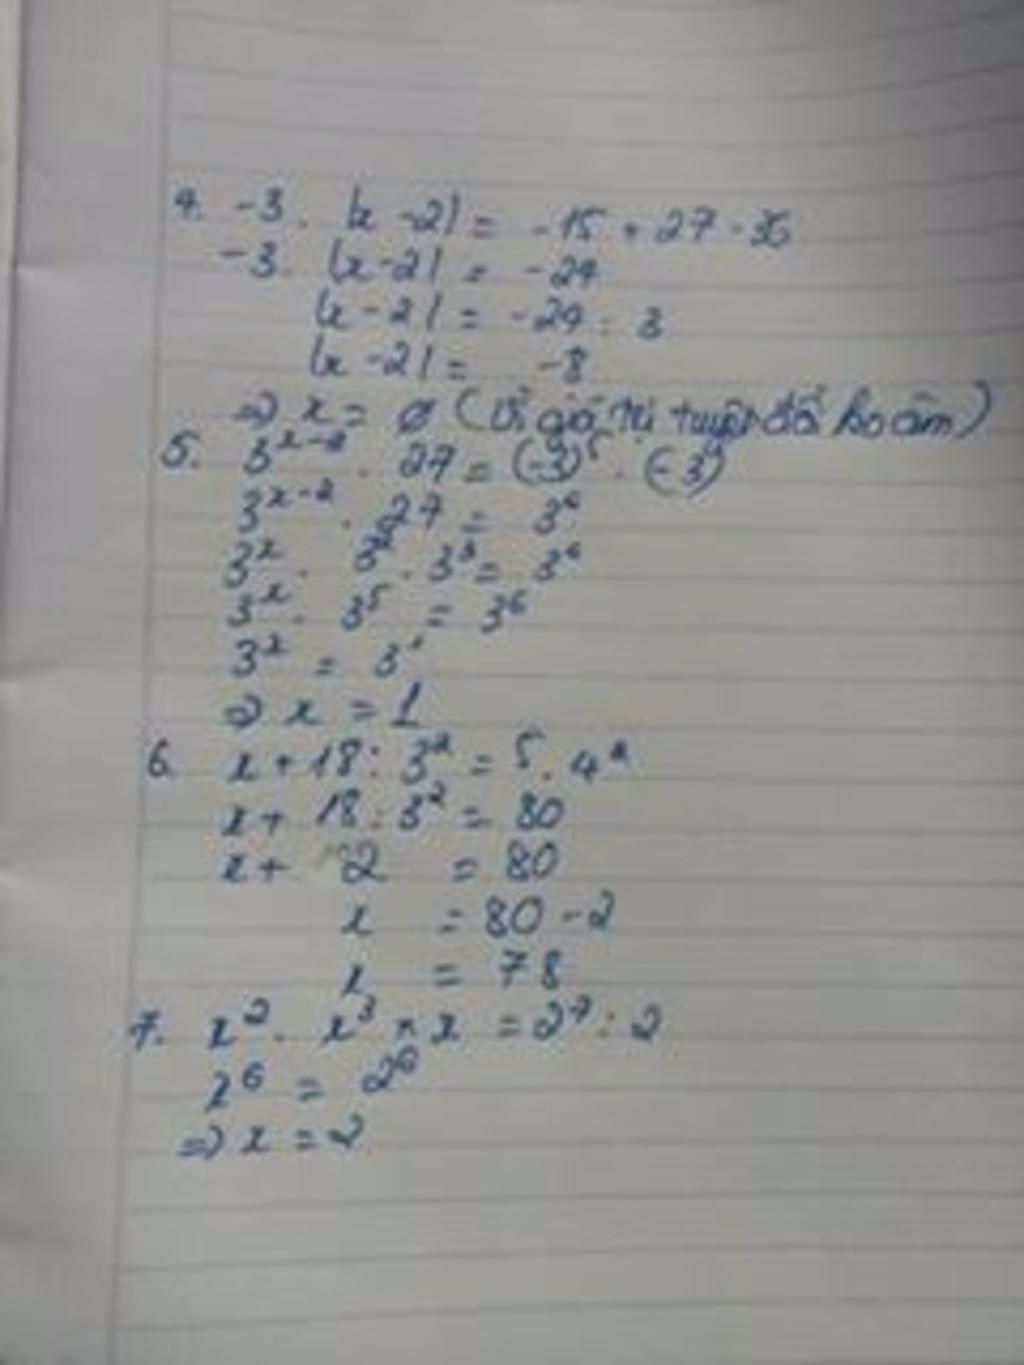 4. -3. |x-2| = -15 + 27 - 36
-3. |x-2| = -24
|x-2| = -24 : 3
|x-2| = -8
⇒ x = ∅ (Vì giá trị tuyệt đối ko âm)
5. 3^{x-2} . 27 = (-3)^5 . (-3)
3^{x-2} . 27 = 3^6
3^x . 3^2 . 3^3 = 3^6
3^x . 3^5 = 3^6
3^x = 3^1
⇒ x = 1
6. x + 18 : 3^2 = 5 . 4^2
x + 18 : 3^2 = 80
x + 2 = 80
x = 80 - 2
x = 78
7. x^2 . x^3 . x = 2^7 : 2
x^6 = 2^6
⇒ x = 2